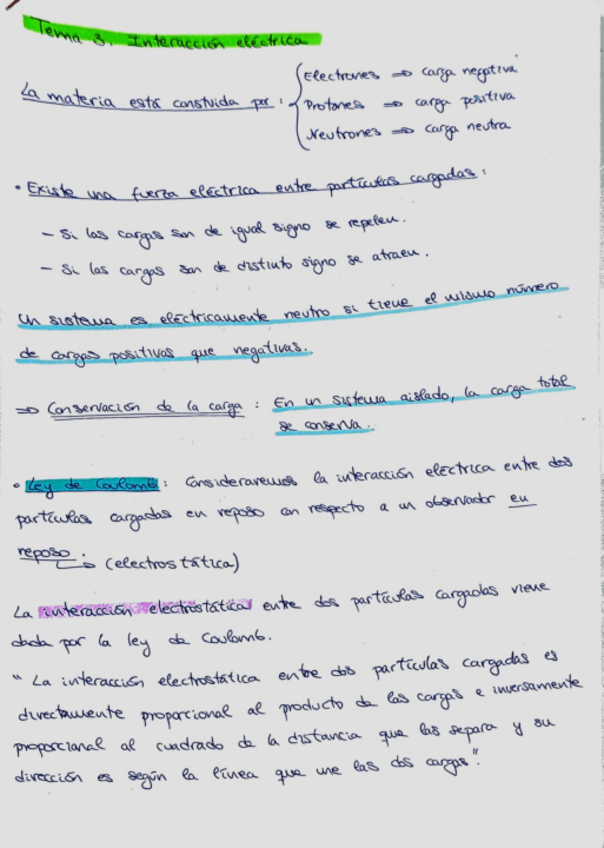 Tema 3. Interacción eléctrica
Electrones ⇒ carga negativa
La materia está constuida por: Protones ⇒ carga positiva
Neutrones ⇒ carga neutra
• Existe una fuerza eléctrica entre partículas cargadas:
- Si las cargas son de igual signo se repelen.
- Si las cargas son de distinto signo se atraen.
Un sistema es eléctricamente neutro si tiene el mismo número
de cargas positivas que negativas.
⇒ Conservación de la carga: En un sistema aislado, la carga total
se conserva.
• Ley de Coulomb: Consideraremos la interacción eléctrica entre dos
partículas cargadas en reposo con respecto a un observador en
reposo.
↳ (electrostática)
La interacción electrostática entre dos partículas cargadas viene
dada por la ley de Coulomb.
" La interacción electrostática entre dos partículas cargadas es
directamente proporcional al producto de las cargas e inversamente
proporcional al cuadrado de la distancia que las separa y su
dirección es según la línea que une las dos cargas".